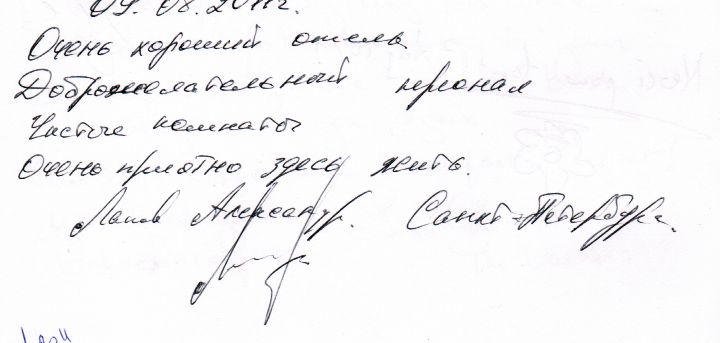 09. 08. 2011г.
Очень хороший отель
Доброжелательный прионал
Чистые комнаты
Очень приятно здесь жить.
Александр. Санкт-Петербург.